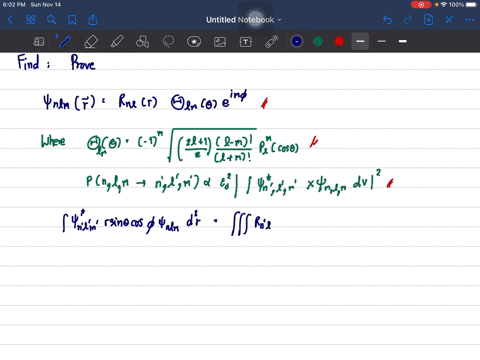 6:02 PM Sun Nov 14
82%
Untitled Notebook
Find : Prove
Ψnlm (r⃗) = Rnl (r) Θlm (θ) e^imφ
Where Θlm (θ) = (-1)^m √((2l+1)/2 (l-m)!/(l+m)!) Pl^m (cosθ)
P (n,l,m → n',l',m') ∝ ε₀² | ∫ Ψ*n',l',m' x Ψn,l,m dV |²
∫ Ψ*n'l'm' r sinθ cos φ Ψnlm d³r = ∭ Rn'l